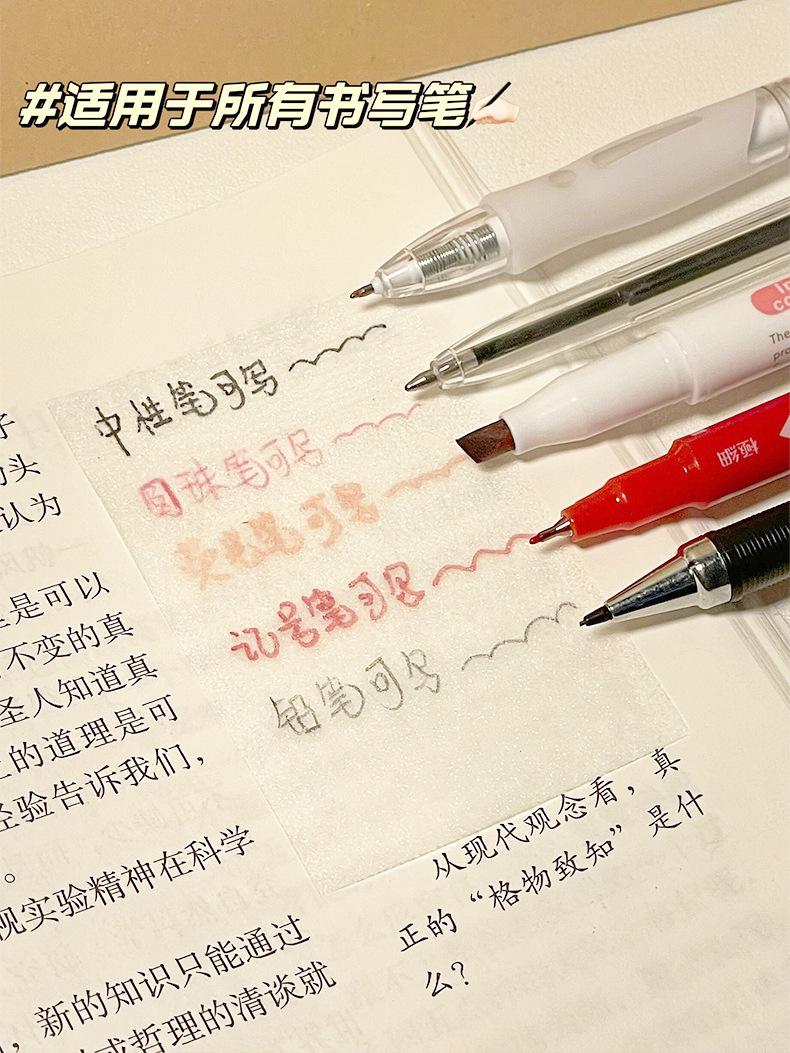 #适用于所有书写笔
中性笔可写
圆珠笔可写
荧光笔可写
记号笔可写
铅笔可写
极細
In
co
The
pro
子
头
认为
是可以
不变的真
圣人知道真
的道理是可
经验告诉我们，
。
视实验精神在科学
，新的知识只能通过
或哲理的清谈就
从现代观念看，真
正的“格物致知”是什
么？